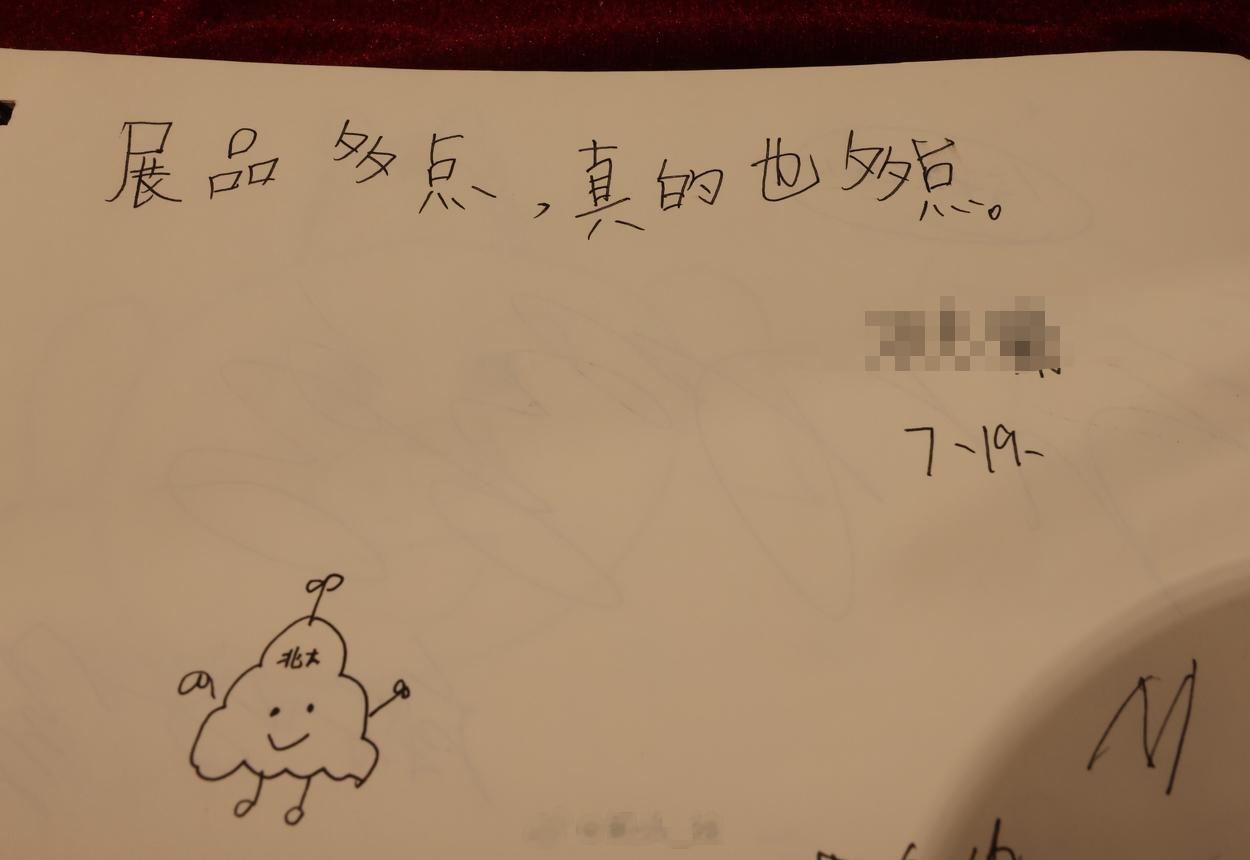 展品多点,真的也多点。
7-19-
北大
N